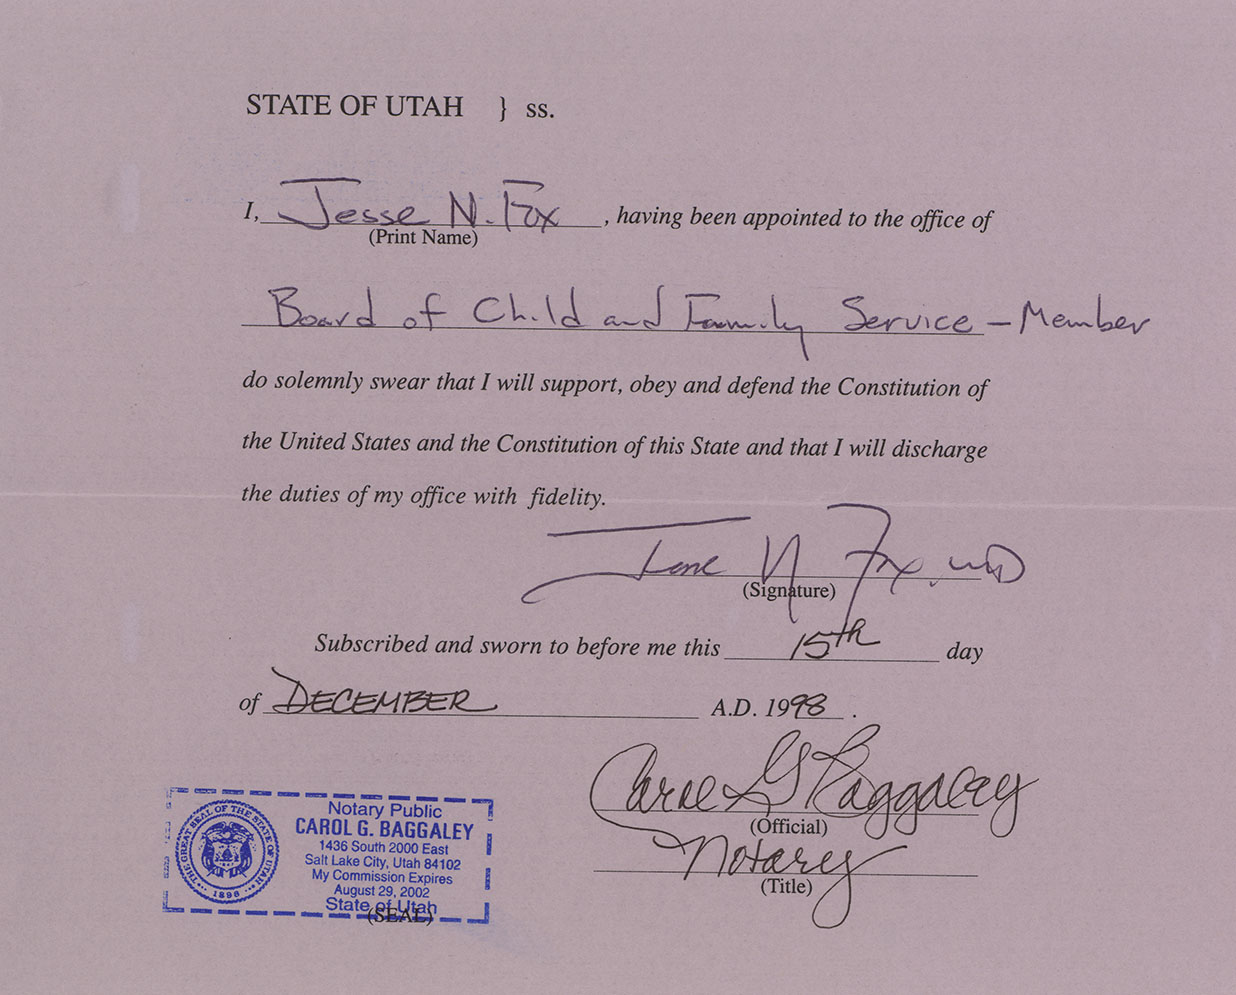 STATE OF UTAH } ss.
I, Jesse N. Fox, having been appointed to the office of
(Print Name)
Board of Child and Family Service - Member
do solemnly swear that I will support, obey and defend the Constitution of
the United States and the Constitution of this State and that I will discharge
the duties of my office with fidelity.
Jesse N Fox, MD
(Signature)
Subscribed and sworn to before me this 15th day
of DECEMBER A.D. 1998.
Carol G Baggaley
(Official)
Notary
(Title)
THE GREAT SEAL OF THE STATE OF UTAH
1896
Notary Public
CAROL G. BAGGALEY
1436 South 2000 East
Salt Lake City, Utah 84102
My Commission Expires
August 29, 2002
State of Utah
(SEAL)